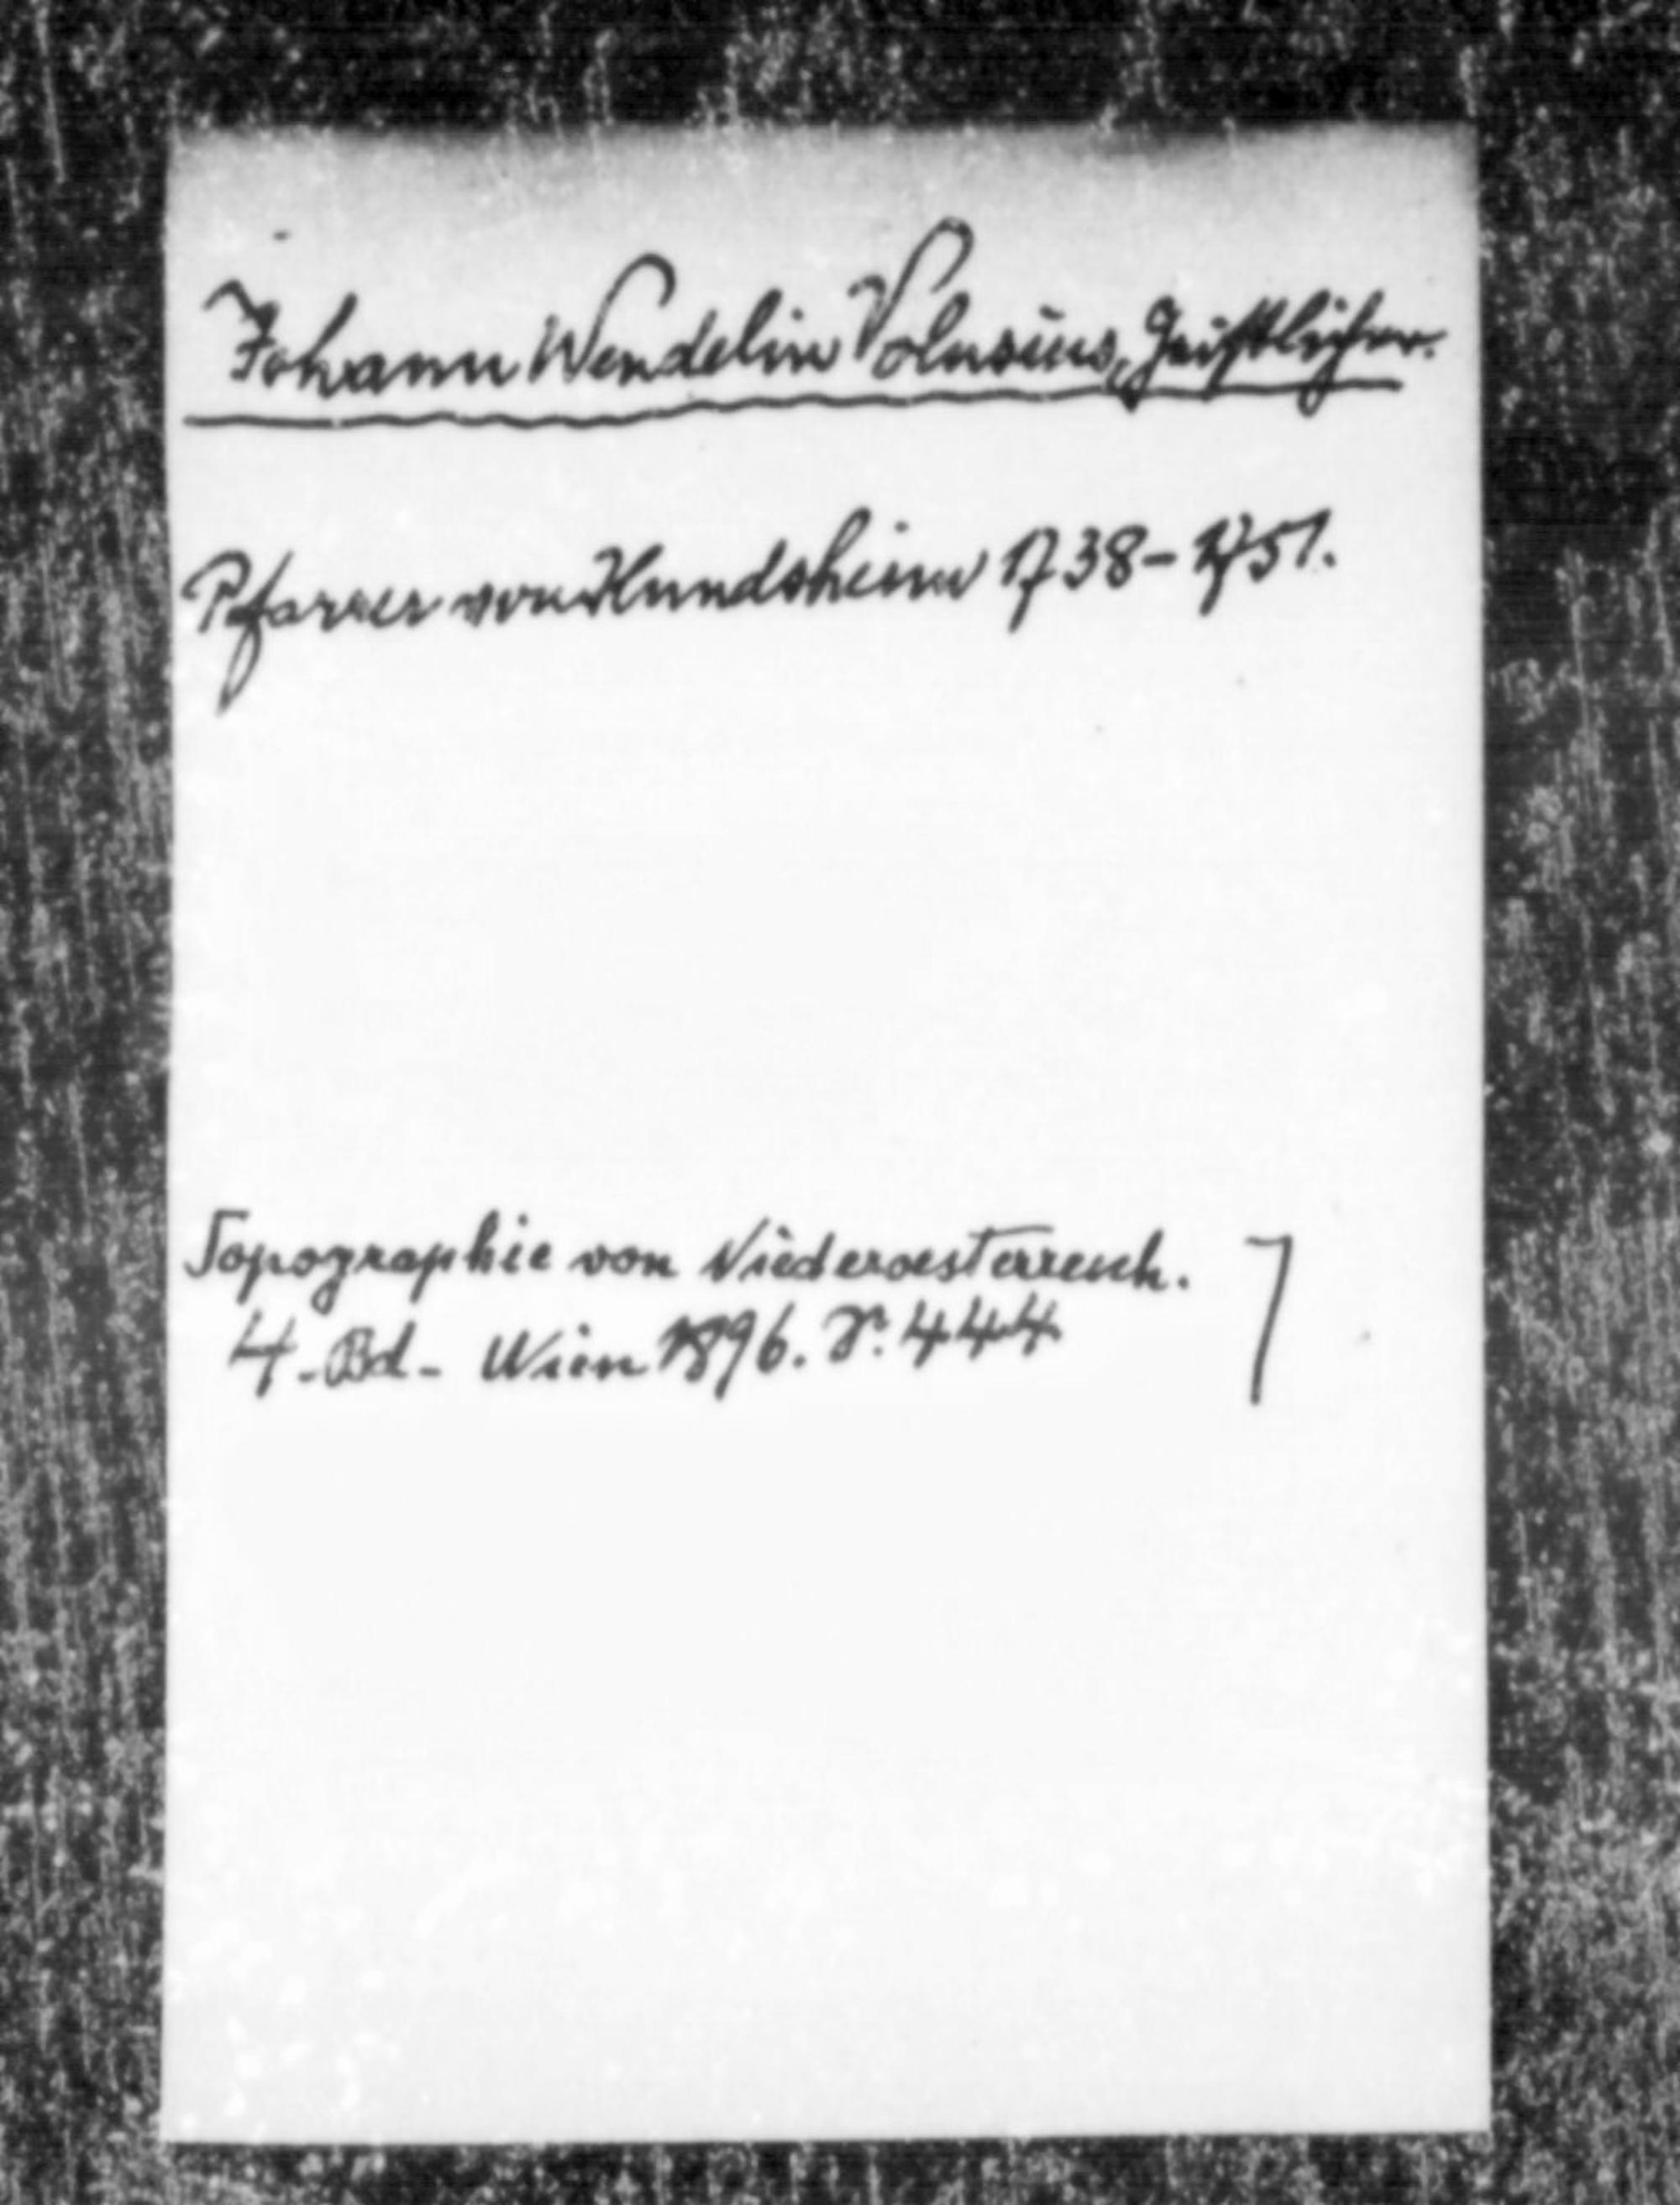 Johann Wendelin Volusius, Geistlicher.
Pfarrer von Hundsheim 1738-1751.
Topographie von Niederoesterreich. 7
4. Bd. Wien 1896. S. 444